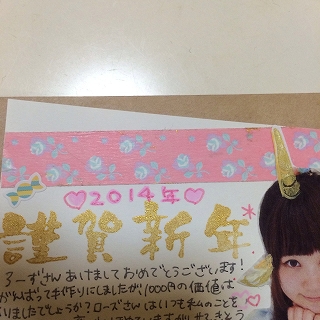 ♡2014年♡
謹賀新年
ろーずさんあけましておめでとうございます!
がんばって手作りにしましたが、1000円の価値は
ありましたでしょうか?ローズさんはいつも私のことを